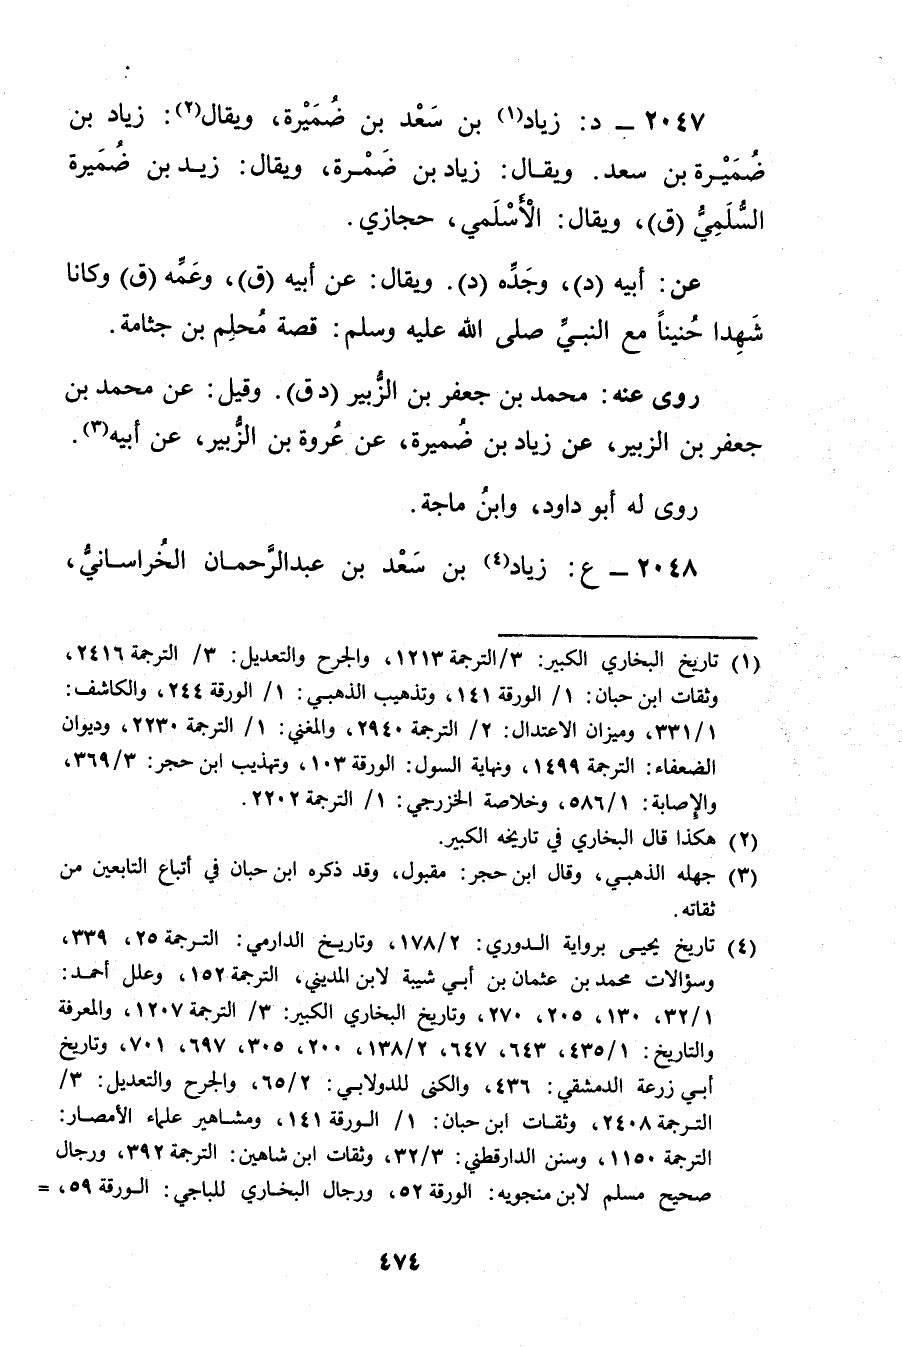 ٢٠٤٧ ــ د: زياد(١) بن سَعْد بن ضُمَيْرة، ويقال(٢): زياد بن
ضُمَيْرة بن سعد. ويقال: زياد بن ضَمْرة، ويقال: زيد بن ضُمَيرة
السُّلَمِيُّ (ق)، ويقال: الْأَسْلَمي، حجازي.
عن: أبيه (د)، وجَدِّه (د). ويقال: عن أبيه (ق)، وعَمِّه (ق) وكانا
شَهِدا حُنيناً مع النبيِّ صلى الله عليه وسلم: قصة مُحلِم بن جثامة.
روى عنه: محمد بن جعفر بن الزُّبير (د ق). وقيل: عن محمد بن
جعفر بن الزبير، عن زياد بن ضُميرة، عن عُروة بن الزُّبير، عن أبيه(٣).
روى له أبو داود، وابنُ ماجة.
٢٠٤٨ ــ ع: زياد(٤) بن سَعْد بن عبدالرَّحمان الخُراسانيُّ،
(١) تاريخ البخاري الكبير: ٣/الترجمة ١٢١٣، والجرح والتعديل: ٣/ الترجمة ٢٤١٦،
وثقات ابن حبان: ١/ الورقة ١٤١، وتذهيب الذهبي: ١/ الورقة ٢٤٤، والكاشف:
٣٣١/١، وميزان الاعتدال: ٢/ الترجمة ٢٩٤٠، والمغني: ١/ الترجمة ٢٢٣٠، وديوان
الضعفاء: الترجمة ١٤٩٩، ونهاية السول: الورقة ١٠٣، وتهذيب ابن حجر: ٣٦٩/٣،
والإصابة: ٥٨٦/١، وخلاصة الخزرجي: ١/ الترجمة ٢٢٠٢.
(٢) هكذا قال البخاري في تاريخه الكبير.
(٣) جهله الذهبي، وقال ابن حجر: مقبول، وقد ذكره ابن حبان في أتباع التابعين من
ثقاته.
(٤) تاريخ يحيى برواية الدوري: ١٧٨/٢، وتاريخ الدارمي: الترجمة ٢٥، ٣٣٩،
وسؤالات محمد بن عثمان بن أبي شيبة لابن المديني، الترجمة ١٥٢، وعلل أحمد:
٣٢/١، ١٣٠، ٢٠٥، ٢٧٠، وتاريخ البخاري الكبير: ٣/ الترجمة ١٢٠٧، والمعرفة
والتاريخ: ٤٣٥/١، ٦٤٣، ٦٤٧، ١٣٨/٢، ٢٠٠، ٣٠٥، ٦٩٧، ٧٠١، وتاريخ
أبي زرعة الدمشقي: ٤٣٦، والكنى للدولابي: ٦٥/٢، والجرح والتعديل: ٣/
الترجمة ٢٤٠٨، وثقات ابن حبان: ١/ الورقة ١٤١، ومشاهير علماء الأمصار:
الترجمة ١١٥٠، وسنن الدارقطني: ٣٢/٣، وثقات ابن شاهين: الترجمة ٣٩٢، ورجال
صحيح مسلم لابن منجويه: الورقة ٥٢، ورجال البخاري للباجي: الورقة ٥٩، =
٤٧٤